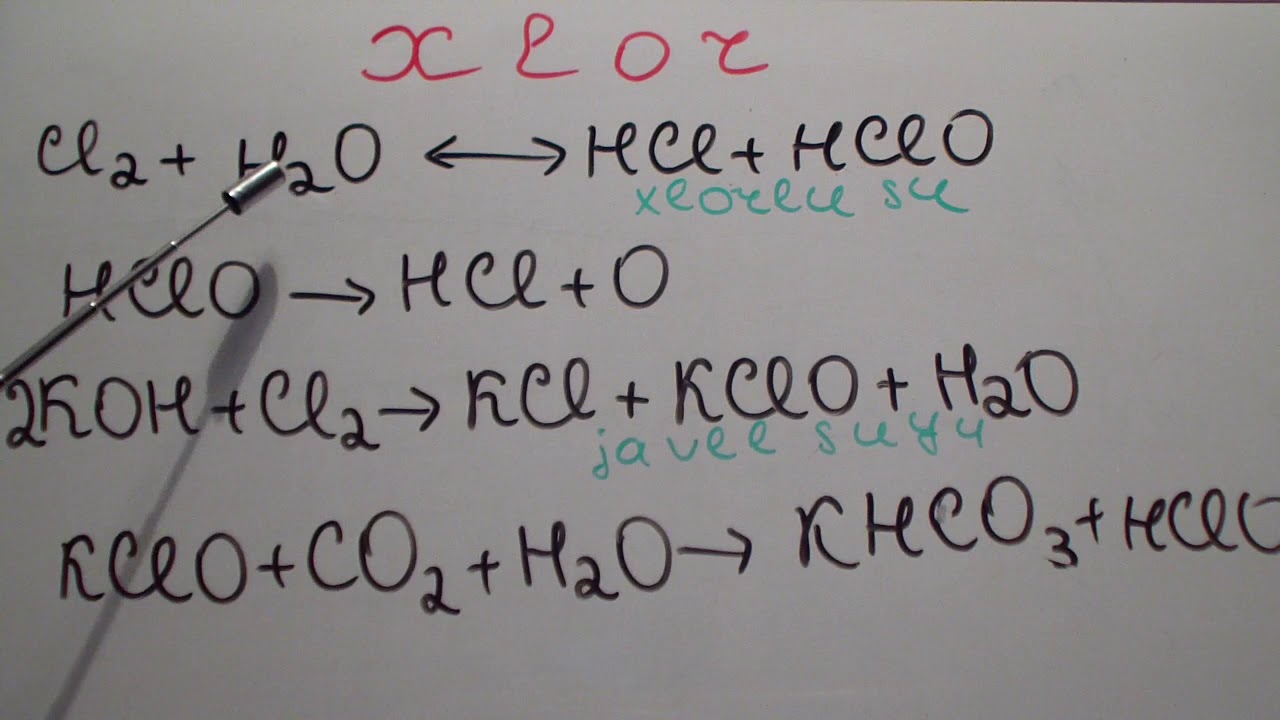 Xlor
Cl₂ + H₂O ⟷ HCl + HClO
xlorlu su
HClO → HCl + O
2KOH + Cl₂ → KCl + KClO + H₂O
javel suyu
KClO + CO₂ + H₂O → KHCO₃ + HClO